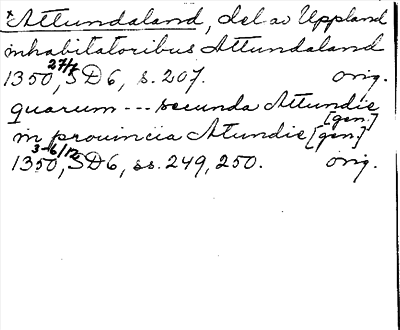 *Attundaland, del av Uppland
inhabitatoribus Attundaland
1350 27/7, SD 6, s. 207. orig.
quarum --- secunda Attundie [gen.]
in prouincia Atundie [gen.]
1350 3-6/12, SD 6, ss. 249, 250. orig.